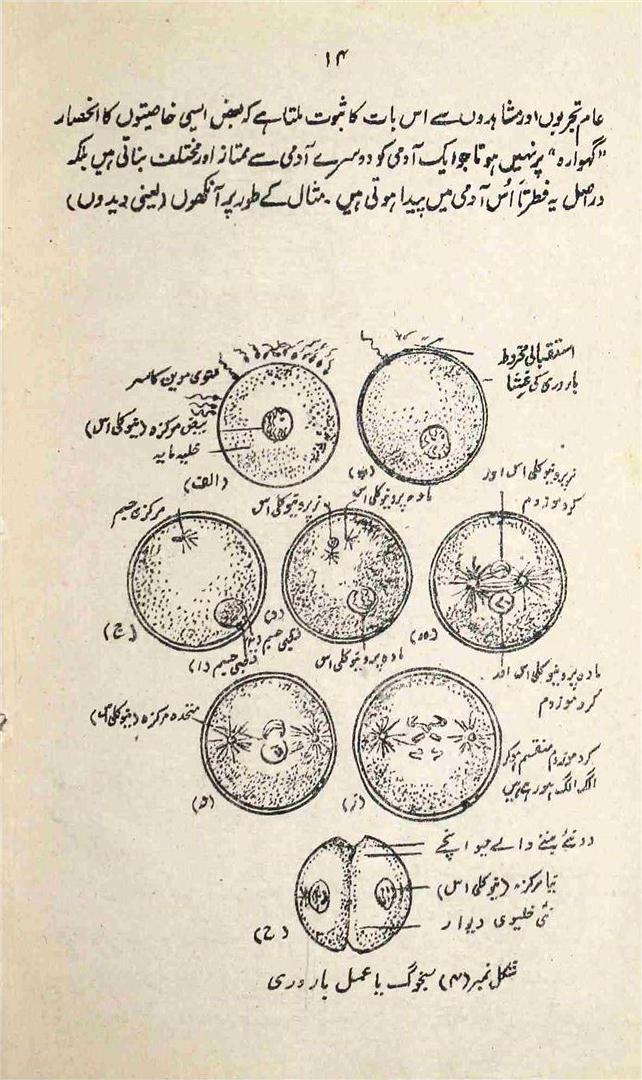 ۱۴
عام تجربوں اور مشاہدوں سے اس بات کا ثبوت ملتا ہے کہ بعض ایسی خاصیتوں کا انحصار
"گہوارہ" پر نہیں ہوتا جو ایک آدمی کو دوسرے آدمی سے ممتاز اور مختلف بناتی ہیں بلکہ
دراصل یہ فطرتاً اُس آدمی میں پیدا ہوتی ہیں۔ مثال کے طور پر آنکھوں (یعنی دیدوں)
استقبالی مخروط
باروری کی غشا
منوی حوین کا سر
بیض مرکزہ (نیوکلی اس)
خلیہ مایہ
(الف)
(ب)
نر پرونیوکلی اس اور
کروموزوم
مرکزی جسیم
نر پرونیوکلی اس
مادہ پرونیوکلی اس
(ج)
(د)
(ہ)
قطبی جسیم (۲)
قطبی جسیم (۱)
مادہ پرونیوکلی اس
مادہ پرونیوکلی اس اور
کروموزوم
متحدہ مرکزہ (نیوکلی اس)
(و)
(ز)
کروموزوم منقسم ہوکر
الگ الگ ہورہے ہیں
دو نئے بننے والے حیوانچے
نیا مرکزہ (نیوکلی اس)
نئی خلیوی دیوار
(ح)
شکل نمبر (۴) سنجوگ یا عمل باروری